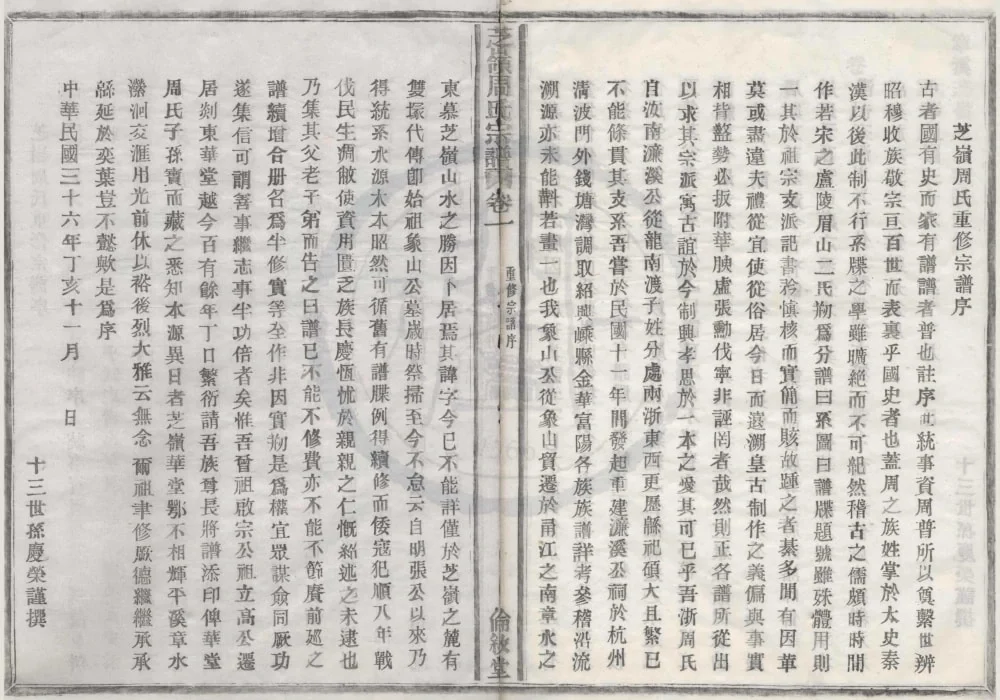 芝嶺周氏重修宗譜序
古者國有史而家有譜譜者普也註序世統事資周普所以奠繫世辨
昭穆收族敬宗亘百世而表裏乎國史者也蓋周之族姓掌於太史秦
漢以後此制不行系牒之學雖曠絶而不可紀然稽古之儒頗時時間
作若宋之廬陵眉山二氏剏爲分譜曰系圖曰譜牒題號雖殊體用則
一其於祖宗支派記書矜愼核而實簡而賅故踵之者綦多間有因革
莫或盡違夫禮從宜使從俗居今日而遠溯皇古制作之義偏與事實
相背盩勢必扳附華腴虛張勳伐寧非誣罔者哉然則正各譜所從出
以求其宗派寓古誼於今制興孝思於一本之愛其可已乎吾浙周氏
自汝南濂溪公從龍南渡子姓分處兩浙東西更歷緜祀碩大且繁已
不能條貫其支系吾嘗於民國十一年間發起重建濂溪公祠於杭州
淸波門外錢塘灣調取紹興嵊縣金華富陽各族族譜詳考參稽沿流
溯源亦未能斠若畫一也我象山公從象山貿遷於甬江之南章水之
芝嶺周氏宗譜
卷一
重修宗譜序
倫敘堂
東慕芝嶺山水之勝因卜居焉其諱字今已不能詳僅於芝嶺之麓有
雙塚代傳卽始祖象山公墓歲時祭掃至今不怠云自明張公以來乃
得統系水源木本昭然可循舊有譜牒例得續修而倭寇犯順八年戰
伐民生凋敝使資用匱乏族長慶恆怵於親親之仁慨紹述之未逮也
乃集其父老子弟而告之曰譜已不能不修費亦不能不節賡前廻之
譜續增合册名爲半修實等全作非因實剏是爲權宜眾謀僉同厥功
遂集信可謂善事繼志事半功倍者矣惟吾晉祖啟宗公祖立高公遷
居剡東華堂越今百有餘年丁口繁衍請吾族尊長將譜添印俾華堂
周氏子孫寶而藏之悉知本源異日者芝嶺華堂鄂不相輝平溪章水
瀠洄交滙用光前休以裕後烈大雅云無念爾祖聿修厥德繼繼承承
緜延於奕葉豈不懿歟是爲序
中華民國三十六年丁亥十一月　日
十三世孫慶榮謹撰